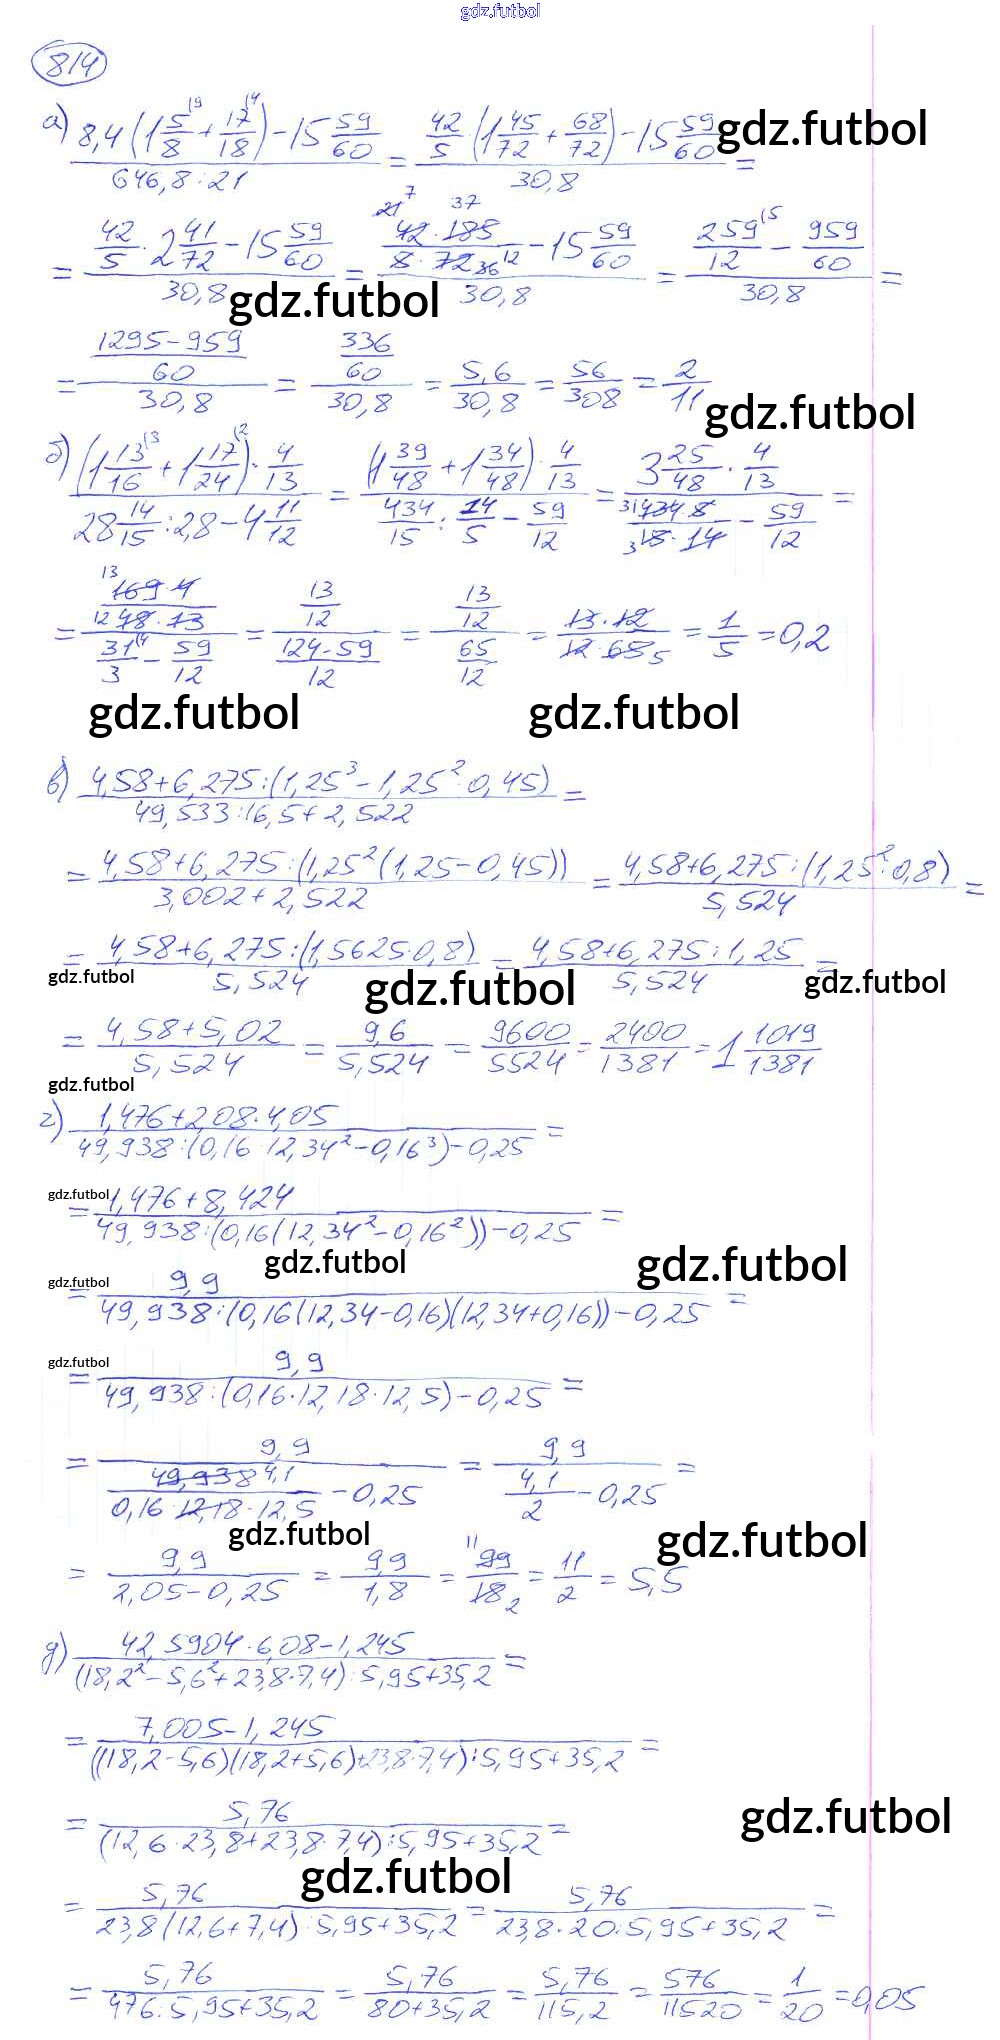 gdz.futbol
814
а) (8,4(1 5/8 + 17/18) - 15 59/60)/(646,8:21) = (42/5·(1 45/72 + 68/72) - 15 59/60)/30,8 =
= (42/5·2 41/72 - 15 59/60)/30,8 = ((42·185)/(5·72) - 15 59/60)/30,8 = (259/12 - 959/60)/30,8 =
= ((1295-959)/60)/30,8 = (336/60)/30,8 = 5,6/30,8 = 56/308 = 2/11
б) ((1 13/16 + 1 17/24)·4/13)/(28 14/15 : 2,8 - 4 11/12) = ((1 39/48 + 1 34/48)·4/13)/(434/15 : 14/5 - 59/12) = (3 25/48 · 4/13)/((434·5)/(15·14) - 59/12) =
= ((169·4)/(48·13))/(31/3 - 59/12) = (13/12)/((124-59)/12) = (13/12)/(65/12) = (13·12)/(12·65) = 1/5 = 0,2
gdz.futbol gdz.futbol
в) (4,58+6,275:(1,25³-1,25²·0,45))/(49,533:16,5+2,522) =
= (4,58+6,275:(1,25²(1,25-0,45)))/(3,002+2,522) = (4,58+6,275:(1,25²·0,8))/5,524 =
= (4,58+6,275:(1,5625·0,8))/5,524 = (4,58+6,275:1,25)/5,524 =
gdz.futbol gdz.futbol gdz.futbol
= (4,58+5,02)/5,524 = 9,6/5,524 = 9600/5524 = 2400/1381 = 1 1019/1381
gdz.futbol
г) (1,476+2,08·4,05)/(49,938:(0,16·12,34²-0,16³)-0,25) =
gdz.futbol
= (1,476+8,424)/(49,938:(0,16(12,34²-0,16²))-0,25) =
gdz.futbol gdz.futbol gdz.futbol
= 9,9/(49,938:(0,16(12,34-0,16)(12,34+0,16))-0,25) =
gdz.futbol
= 9,9/(49,938:(0,16·12,18·12,5)-0,25) =
= 9,9/(49,938/(0,16·12,18·12,5) - 0,25) = 9,9/(4,1/2 - 0,25) =
gdz.futbol gdz.futbol
= 9,9/(2,05-0,25) = 9,9/1,8 = 99/18 = 11/2 = 5,5
д) (42,5904:6,08-1,245)/((18,2²-5,6²+23,8·7,4):5,95+35,2) =
= (7,005-1,245)/(((18,2-5,6)(18,2+5,6)+23,8·7,4):5,95+35,2) =
= 5,76/((12,6·23,8+23,8·7,4):5,95+35,2) =
gdz.futbol gdz.futbol
= 5,76/(23,8(12,6+7,4):5,95+35,2) = 5,76/(23,8·20:5,95+35,2) =
= 5,76/(476:5,95+35,2) = 5,76/(80+35,2) = 5,76/115,2 = 576/11520 = 1/20 = 0,05